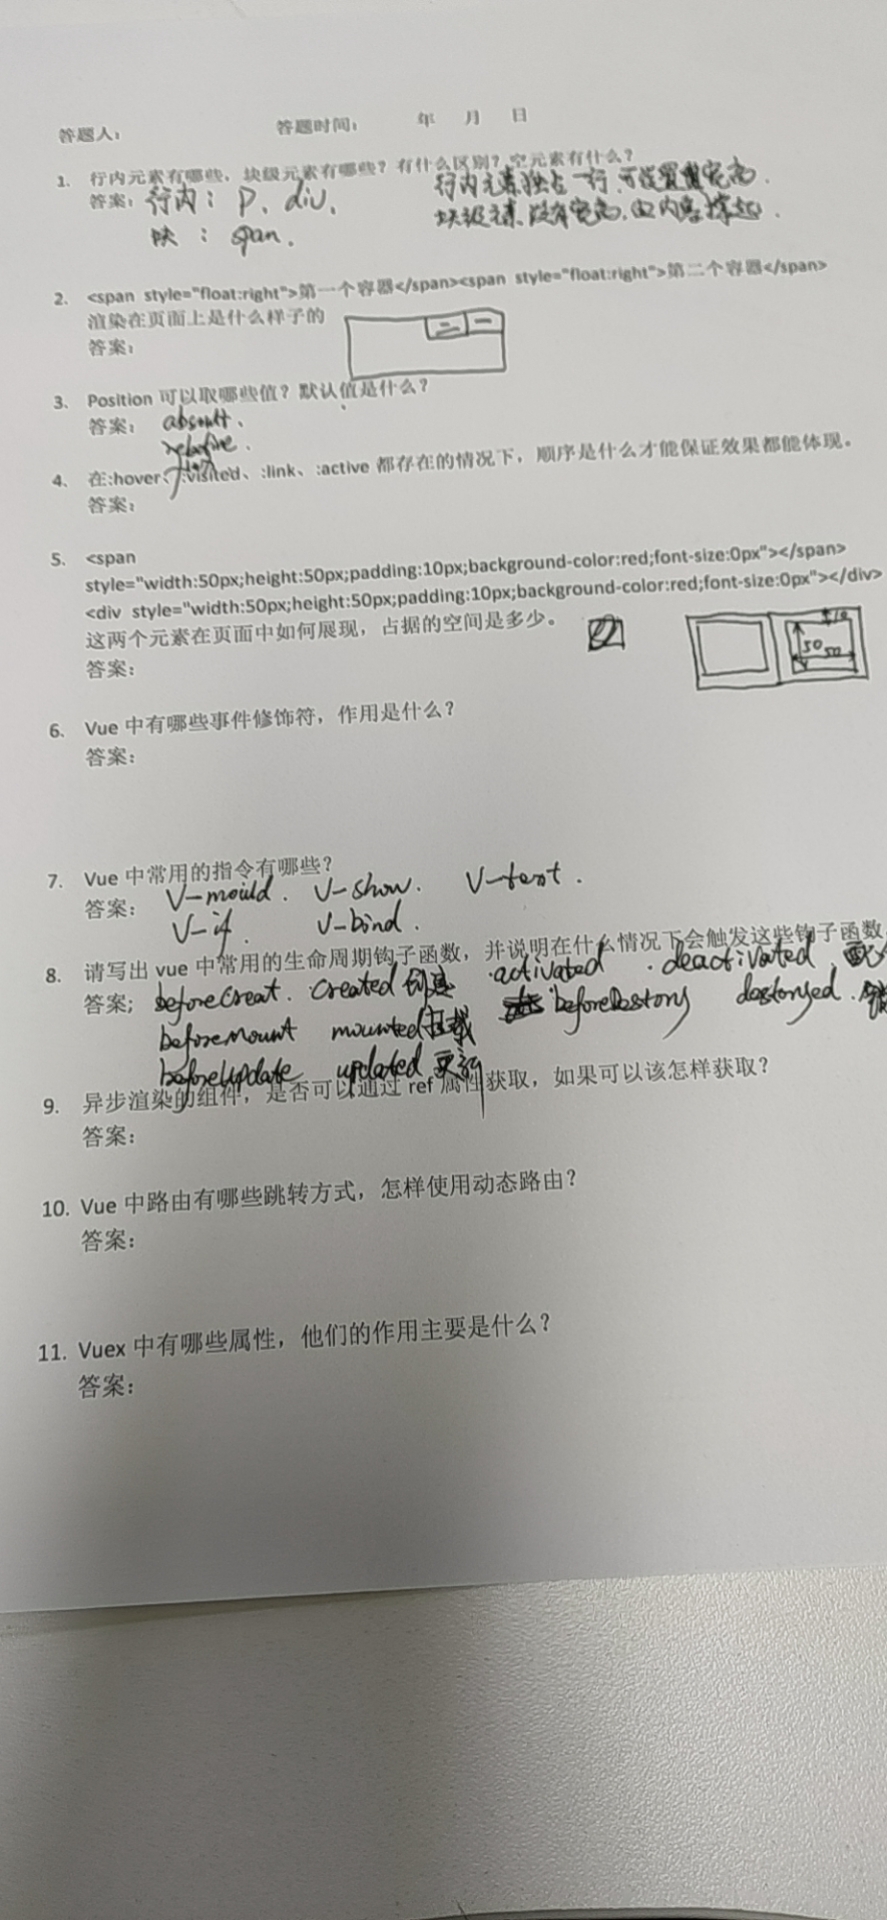 答题人： 答题时间： 年 月 日
1. 行内元素有哪些，块级元素有哪些？有什么区别？空元素有什么？
答案：行内：P、div、 行内元素独占一行、可设置宽高.
块：span. 块级元素、没有宽高、由内容撑起.
2. <span style="float:right">第一个容器</span><span style="float:right">第二个容器</span>
渲染在页面上是什么样子的
二 一
答案：
3、 Position 可以取哪些值？默认值是什么？
答案：
relative.
4、 在:hover、:visited、:link、:active 都存在的情况下，顺序是什么才能保证效果都能体现。
答案：
5、 <span
style="width:50px;height:50px;padding:10px;background-color:red;font-size:0px"></span>
<div style="width:50px;height:50px;padding:10px;background-color:red;font-size:0px"></div>
这两个元素在页面中如何展现，占据的空间是多少。
10
50 50
答案：
6、 Vue 中有哪些事件修饰符，作用是什么？
答案：
7. Vue 中常用的指令有哪些？
答案： V-show. V-text.
V-if. V-bind.
8. 请写出 vue 中常用的生命周期钩子函数，并说明在什么情况下会触发这些钩子函数
答案; beforeCreat. Created 创建 .activated .deactivated.
beforeMount mounted挂载 beforeDestory destoryed.
beforeUpdate updated 更新
9. 异步渲染的组件，是否可以通过 ref 属性获取，如果可以该怎样获取？
答案：
10. Vue 中路由有哪些跳转方式，怎样使用动态路由？
答案：
11. Vuex 中有哪些属性，他们的作用主要是什么？
答案：